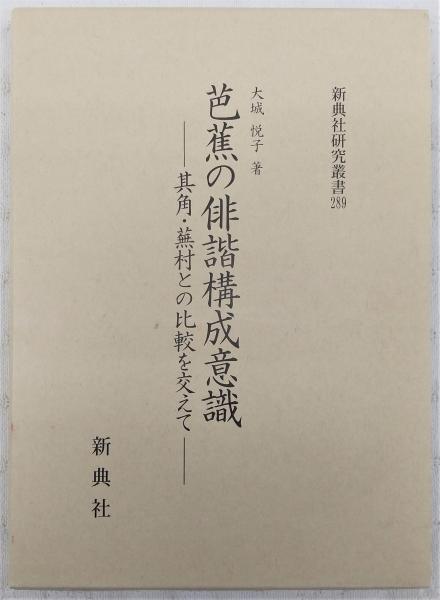 新典社研究叢書289
大城 悦子 著
芭蕉の俳諧構成意識
――其角・蕪村との比較を交えて――
新典社